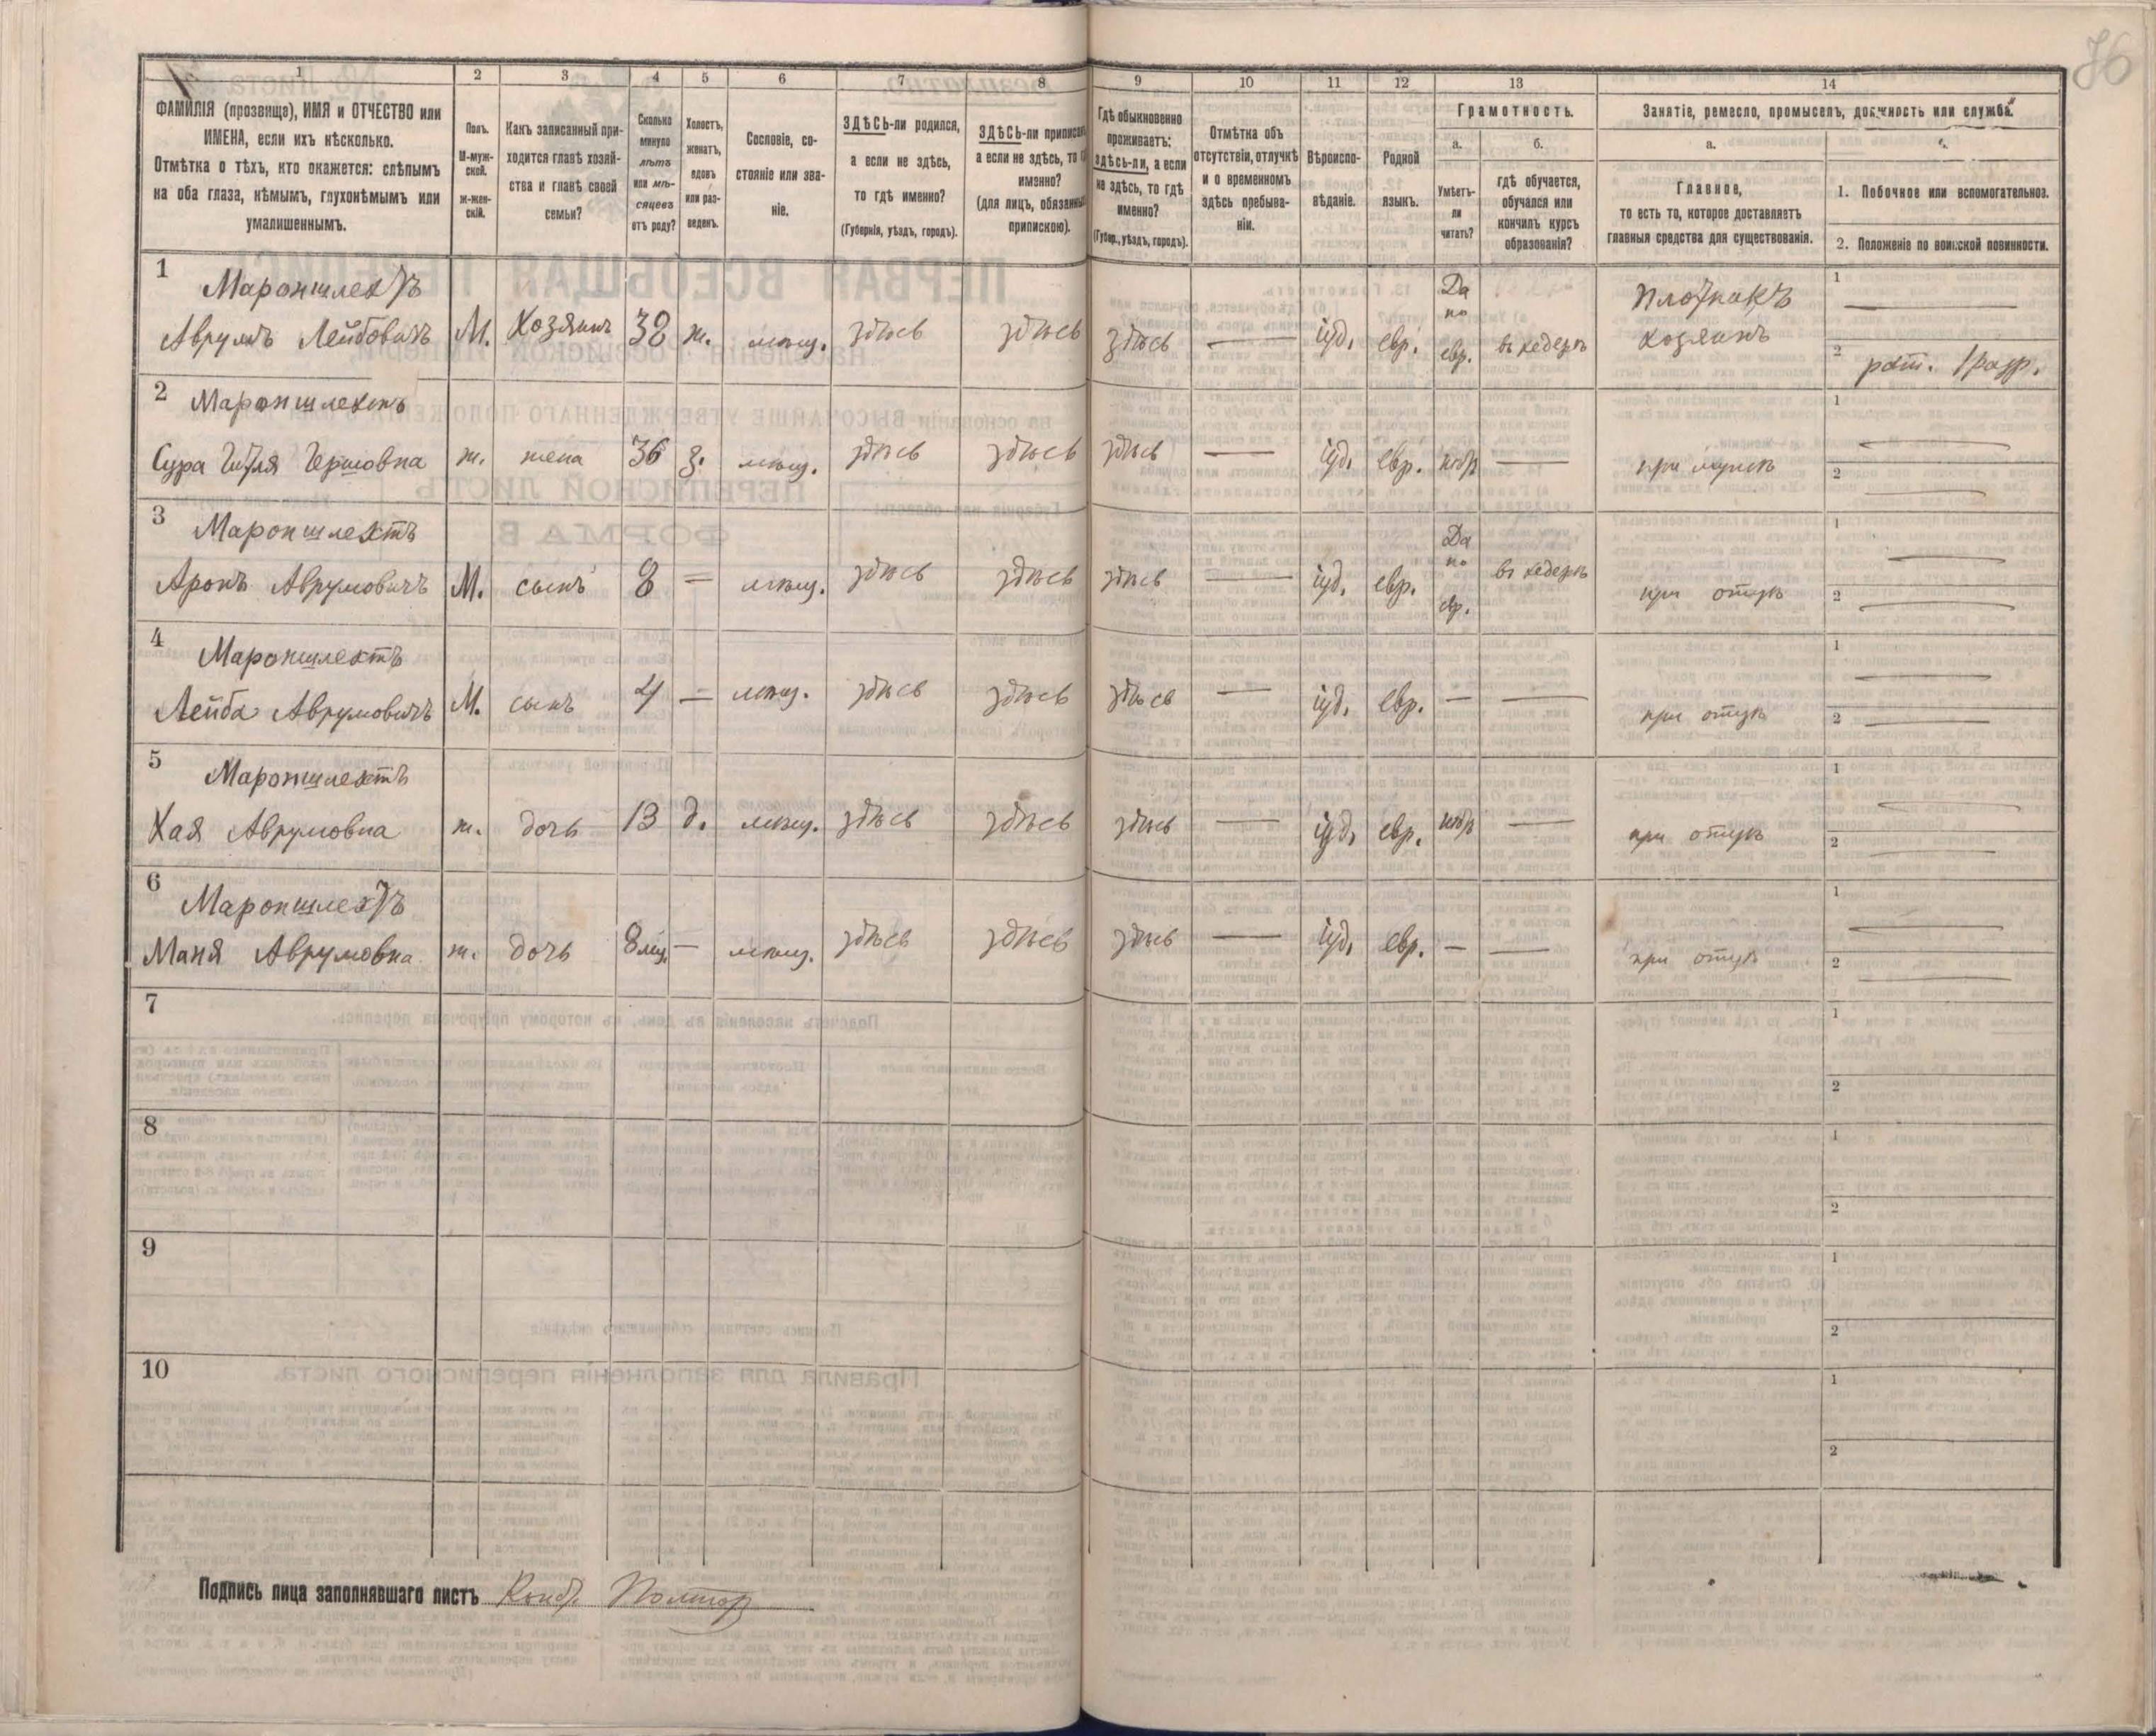 76
1 2 3 4 5 6 7 8 9 10 11 12 13 14
ФАМИЛІЯ (прозвище), ИМЯ и ОТЧЕСТВО или
ИМЕНА, если ихъ нѣсколько.
Отмѣтка о тѣхъ, кто окажется: слѣпымъ
на оба глаза, нѣмымъ, глухонѣмымъ или
умалишеннымъ.
Полъ.
М-муж-
ской.
Ж-жен-
скій.
Какъ записанный при-
ходится главѣ хозяй-
ства и главѣ своей
семьи?
Сколько
минуло
лѣтъ
или мѣ-
сяцевъ
отъ роду?
Холостъ,
женатъ,
вдовъ
или раз-
веденъ.
Сословіе, со-
стояніе или зва-
ніе.
ЗДѢСЬ-ли родился,
а если не здѣсь,
то гдѣ именно?
(Губернія, уѣздъ, городъ).
ЗДѢСЬ-ли приписанъ
а если не здѣсь, то
именно?
(для лицъ, обязанны
припискою).
Гдѣ обыкновенно
проживаетъ:
здѣсь-ли, а если
не здѣсь, то гдѣ
именно?
(Губер., уѣздъ, городъ).
Отмѣтка объ
отсутствіи, отлучкѣ
и о временномъ
здѣсь пребыва-
ніи.
Вѣроиспо-
вѣданіе.
Родной
языкъ.
Грамотность.
а.
Умѣетъ-
ли
читать?
б.
гдѣ обучается,
обучался или
кончилъ курсъ
образованія?
Занятіе, ремесло, промыселъ, должность или служба.
а.
Главное,
то есть то, которое доставляетъ
главныя средства для существованія.
1. Побочное или вспомогательное.
2. Положеніе по воинской повинности.
1 Мароншлехтъ Да Плотникъ 1 —
по
Аврумъ Лейбовичъ М. Хозяинъ 38 ж. мѣщ. здѣсь здѣсь здѣсь — іуд. евр. евр. въ хедерѣ хозяинъ 2 рат. 1 разр.
2 Мароншлехтъ 1 —
Сура Гитля Гершовна ж. жена 36 з. мѣщ. здѣсь здѣсь здѣсь — іуд. евр. нѣтъ — при мужѣ 2 —
3 Мароншлехтъ Да 1 —
по
Аронъ Аврумовичъ М. сынъ 8 — мѣщ. здѣсь здѣсь здѣсь — іуд. евр. евр. въ хедерѣ при отцѣ 2 —
4 Мароншлехтъ 1 —
Лейба Аврумовичъ М. сынъ 4 — мѣщ. здѣсь здѣсь здѣсь — іуд. евр. — — при отцѣ 2 —
5 Мароншлехтъ 1 —
Хая Аврумовна ж. дочь 13 д. мѣщ. здѣсь здѣсь здѣсь — іуд. евр. нѣтъ — при отцѣ 2 —
6 Мароншлехтъ 1 —
Маня Аврумовна ж. дочь 8 мц. — мѣщ. здѣсь здѣсь здѣсь — іуд. евр. — — при отцѣ 2 —
7 1
2
8 1
2
9 1
2
10 1
2
Подпись лица заполнявшаго листъ